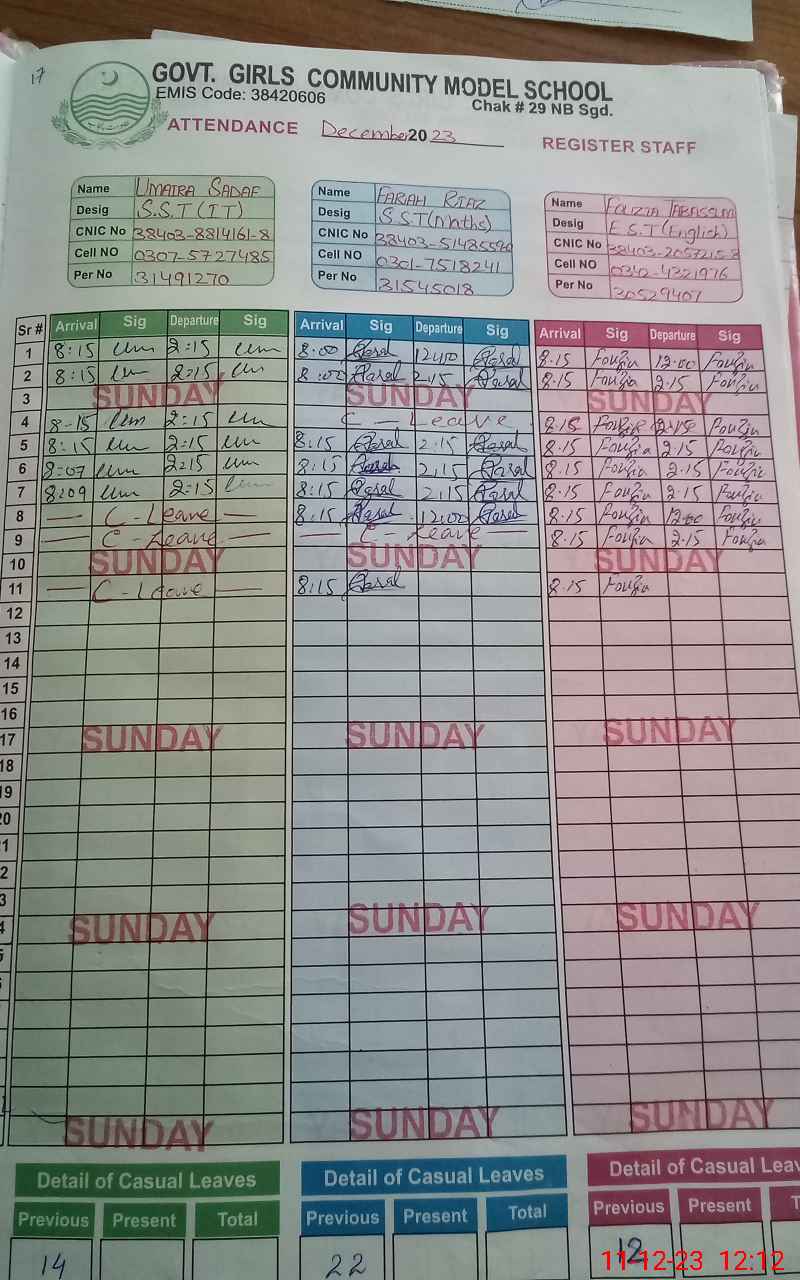 17
GOVT. GIRLS COMMUNITY MODEL SCHOOL
EMIS Code: 38420606 Chak # 29 NB Sgd.
ATTENDANCE December 2023 REGISTER STAFF
Name UMAIRA SADAF Name FARAH RIAZ Name FOUZIA TABASSUM
Desig S.S.T (IT) Desig S.S.T (Maths) Desig E.S.T (English)
CNIC No 38403-8814161-8 CNIC No CNIC No
Cell NO 0307-5727485 Cell NO 0301-7518241 Cell NO 0342-4321976
Per No 31491270 Per No 31545018 Per No 30529407
Sr # Arrival Sig Departure Sig Arrival Sig Departure Sig Arrival Sig Departure Sig
1 8:15 2:15 8:00 8.15 Fouzia 12.00 Fouzia
2 8:15 2:15 8:00 2:15 8.15 Fouzia 2.15 Fouzia
3 SUNDAY SUNDAY SUNDAY
4 8-15 2:15 C - Leave 8.15 Fouzia 2.15 Fouzia
5 8:15 2:15 8:15 2:15 8.15 Fouzia 2.15 Fouzia
6 8:07 2:15 8:15 2:15 8.15 Fouzia 2.15 Fouzia
7 8:09 2:15 8:15 2:15 8.15 Fouzia 2.15 Fouzia
8 — C-Leave — 8:15 12:00 8.15 Fouzia 12.00 Fouzia
9 — C-Leave — — C-Leave — 8.15 Fouzia 2.15 Fouzia
10 SUNDAY SUNDAY SUNDAY
11 — C-Leave — 8:15 8.15 Fouzia
12
13
14
15
16
17 SUNDAY SUNDAY SUNDAY
18
19
20
21
22
23
SUNDAY SUNDAY SUNDAY
SUNDAY SUNDAY SUNDAY
Detail of Casual Leaves Detail of Casual Leaves Detail of Casual Leav
Previous Present Total Previous Present Total Previous Present T
14 22 12
11-12-23 12:12